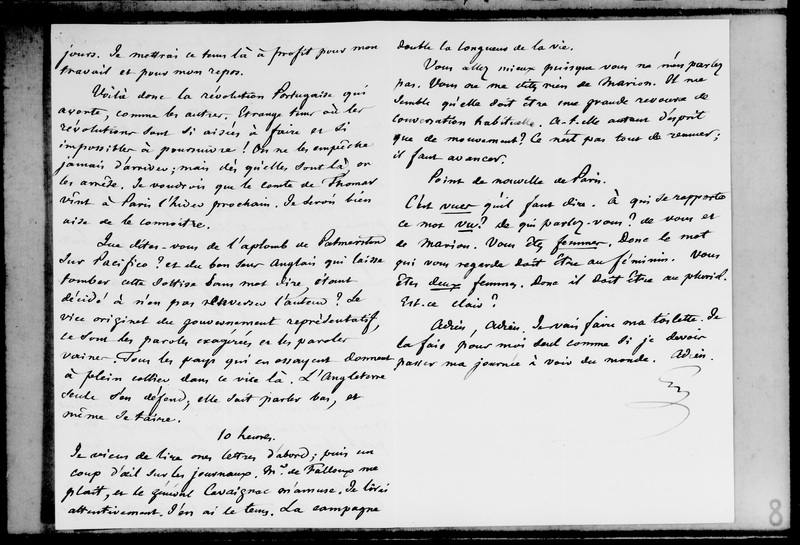 jours. Je mettrai ce tems là à profit pour mon
travail et pour mon repos.
Voilà donc la révolution Portugaise qui
avorte, comme les autres. Etrange tems où les
révolutions sont si aisées à faire et si
impossibles à poursuivre ! On ne les empêche
jamais d'arriver ; mais dès qu'elles sont là on
les arrête. Je voudrois que le comte de Thomar
vînt à Paris l'hiver prochain. Je serois bien
aise de le connoître.
Que dites-vous de l'aplomb de Palmerston
sur Pacifico ? et du bon sens Anglais qui laisse
tomber cette sottise sans mot dire, étant
décidé à n'en pas renverser l'auteur ? Le
vice originel du gouvernement représentatif,
ce sont les paroles exagérées et les paroles
vaines. Tous les pays qui en essayent donnent
à plein collier dans ce vice là. L'Angleterre
seule s'en défend ; elle sait parler bas, et
même se taire.
10 heures.
Je viens de lire mes lettres d'abord ; puis un
coup d'œil sur les journaux. Mr. de Falloux me
plait, et le général Cavaignac m'amuse. Je lirai
attentivement. J'en ai le tems. La campagne
double la longueur de la vie.
Vous allez mieux puisque vous ne m'en parlez
pas. Vous ne me dites rien de Marion. Il me
semble qu'elle doit être une grande ressource de
conversation habituelle. A-t-elle autant d'esprit
que de mouvement ? Ce n'est pas tout de remuer ;
il faut avancer.
Point de nouvelle de Paris.
C'est vues qu'il faut dire. à qui se rapporte
ce mot vu ? de qui parlez-vous ? de vous et
de Marion. Vous êtes femmes. Donc le mot
qui vous regarde doit être au féminin. Vous
êtes deux femmes. Donc il doit être au pluriel.
Est-ce clair ?
Adieu, Adieu. Je vais faire ma toilette. Je
la fais pour moi seul comme si je devois
passer ma journée à voir du monde. Adieu.
8